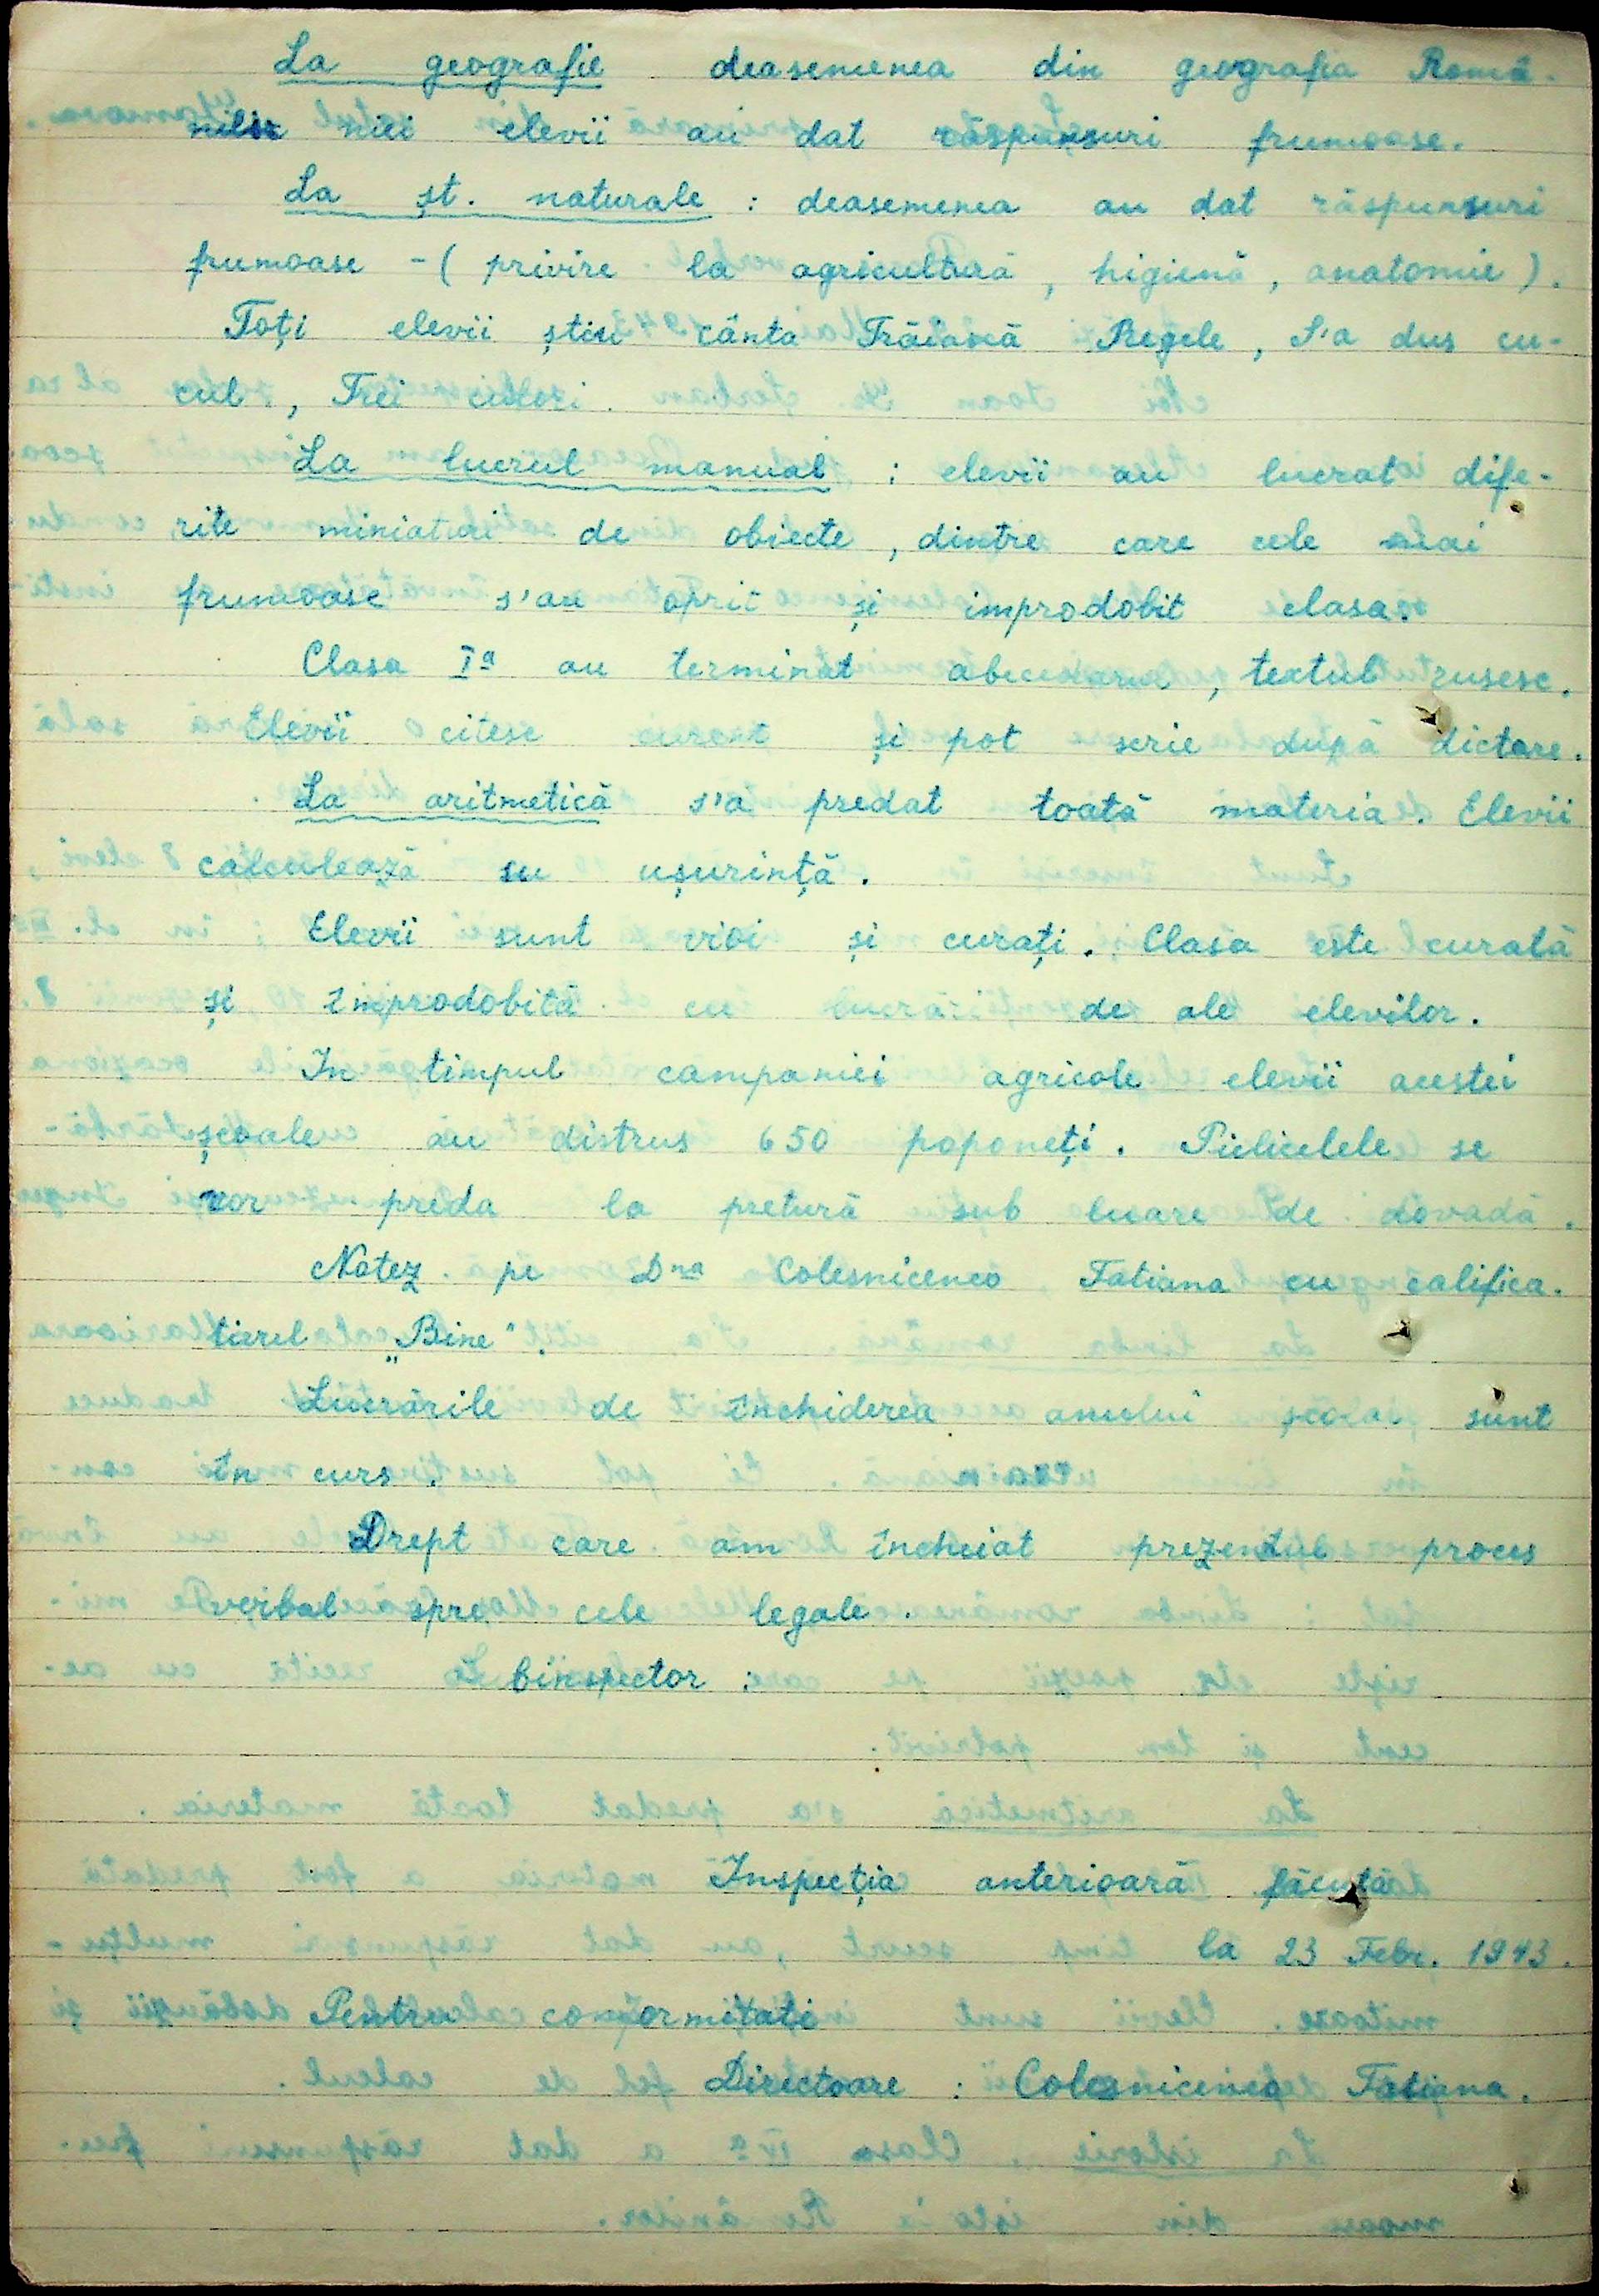 La geografie deasemenea din geografia Româ-
niei elevii au dat răspunsuri frumoase.
La șt. naturale : deasemenea au dat răspunsuri
frumoase - ( privire la agricultură , higienă , anatomie ) .
Toți elevii știu cânta Trăiască Regele , S'a dus cu-
cul , Trei culori .
La lucrul manual : elevii au lucrat dife-
rite miniaturi de obiecte , dintre care cele mai
frumoase s'au oprit și improdobit clasa .
Clasa Iª au terminat abecedarul , textul rusesc .
Elevii citesc curent și pot scrie după dictare .
La aritmetică s'a predat toată materia . Elevii
calculează su ușurință .
Elevii sunt vioi și curați . Clasa este curată
și improdobită cu lucrări de ale elevilor .
In timpul campaniei agricole elevii acestei
școale au distrus 650 poponeți . Pielicelele se
vor preda la pretură sub luare de dovadă .
Notez pe Dna Colesnicenco Tatiana cu califica-
tivul „Bine" .
Lucrările de închiderea anului școlar sunt
în curs .
Drept care am încheiat prezentul proces
verbal spre cele legale .
inspector :
Inspecția anterioară făcută
la 23 Febr. 1943 .
Pentru conformitate
Directoare : Colesnicenco Tatiana .